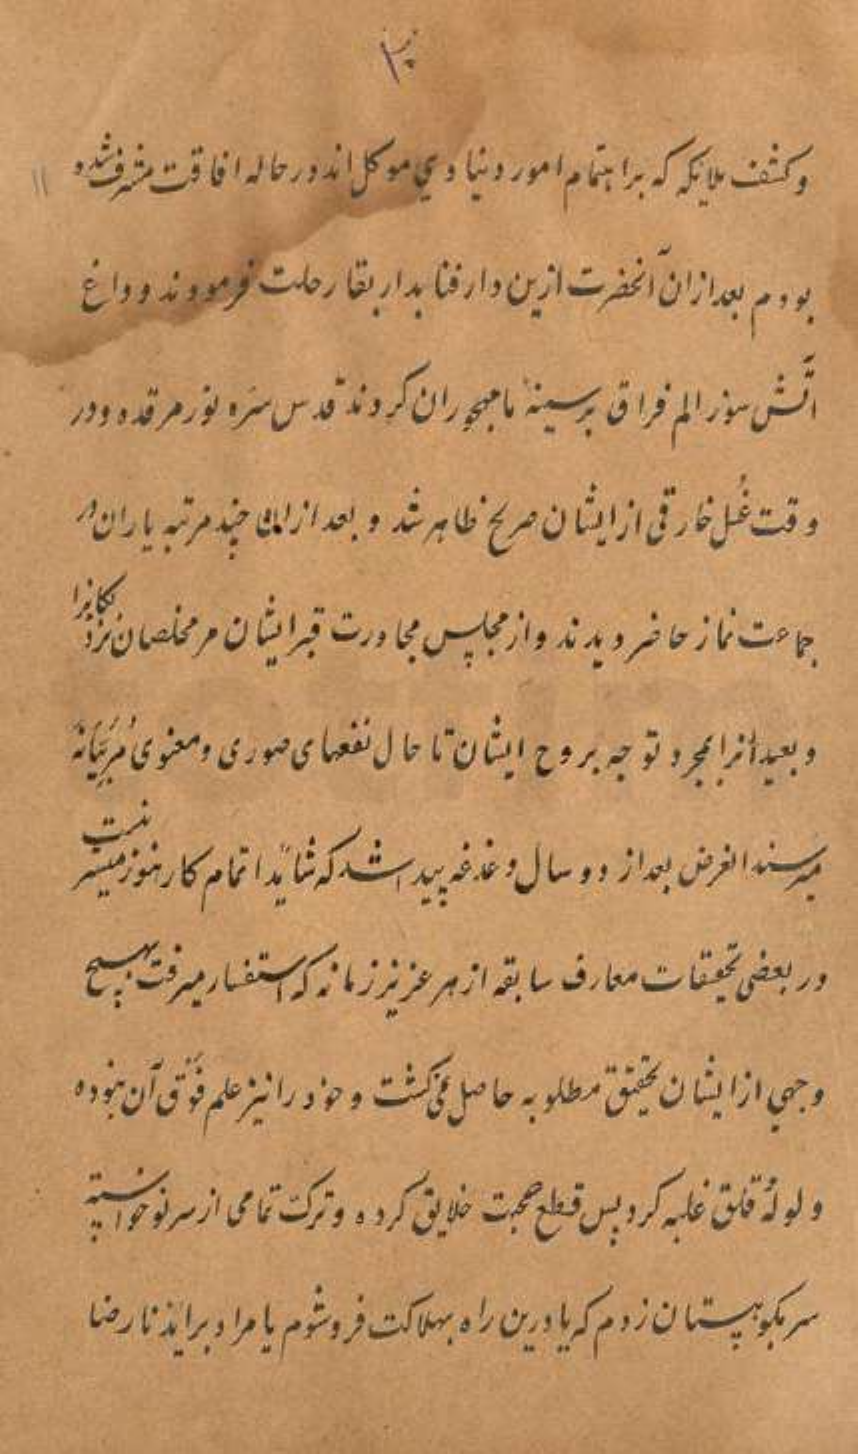 ۳
وکشف ملایکه که براهتمام امور دنیاوی موکل اند در حاله افاقت مشرف شده
بودم بعد ازان آنحضرت ازین دار فنا بدار بقا رحلت فرمودند و داغ
آتش سوز الم فراق بر سینهٔ ما مهجوران کردند قدس سره نور مرقده و در
وقت غسل خارقی از ایشان صریح ظاهر شد و بعد از چند مرتبه یاران در
جماعت نماز حاضر دیدند و از مجلس مجاورت قبر ایشان مر مخلصان نزدیکانرا
و بعیدانرا بمجرد توجه بروح ایشان تا حال نفعهای صوری و معنوی مربیانه
میرسند الغرض بعد از دو سال دغدغه پیدا شد که شاید اتمام کار هنوز میسر نیست
در بعضی تحقیقات معارف سابقه از هر عزیز زمانه که استفسار میرفت بهیچ
وجهی از ایشان تحقیق مطلوبه حاصل نمی گشت و خود را نیز علم فوق آن نبوده
ولولهٔ قلق غلبه کرد پس قطع صحبت خلایق کرده و ترک تمامی از سر نو خواسته
سر بکوهستان زدم که یا درین راه بهلاکت فرو شوم یا مراد براید نا رضا